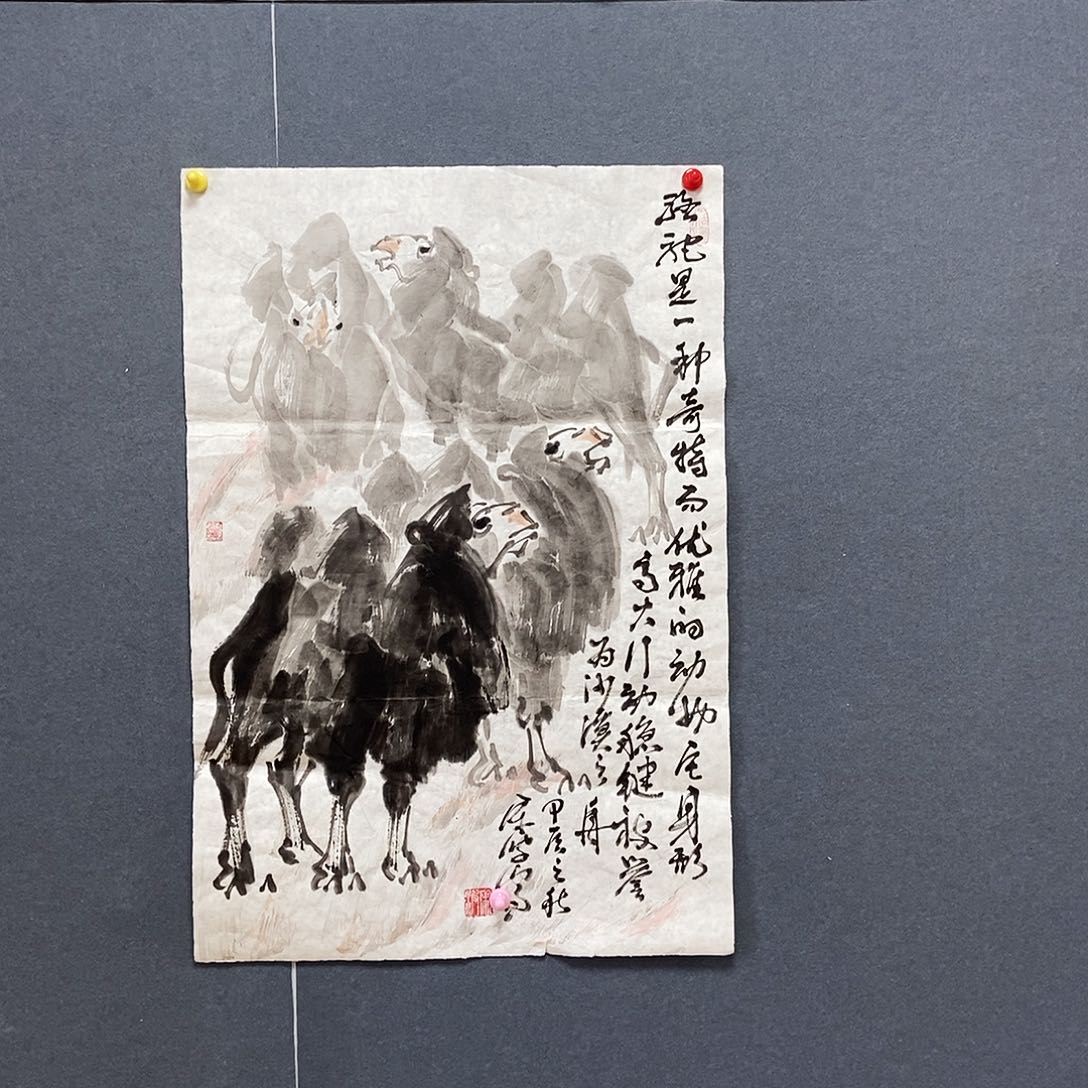 骆驼是一种奇特而优雅的动物它身形
高大行动稳健被誉
为沙漠之舟
甲辰之秋